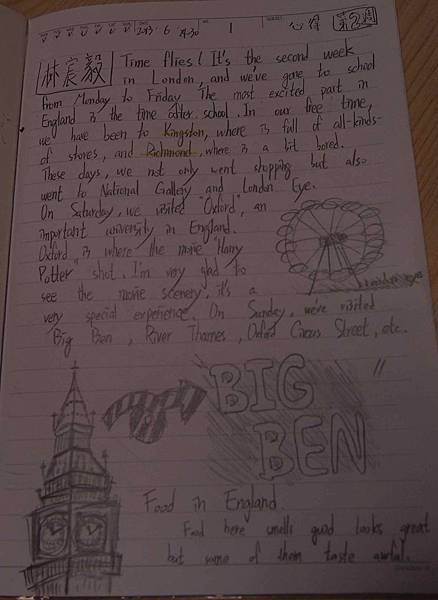 1 心得 第2週
林宸毅
Time flies! It's the second week
in London, and we've gone to school
from Monday to Friday. The most excited part in
England is the time after school. In our free time,
we have been to Kingston, where is full of all-kinds-
of stores, and Richmond, where is a bit bored.
These days, we not only went shopping but also
went to National Gallery and London Eye.
On Saturday, we visited "Oxford", an
important university in England.
Oxford is where the movie "Harry
Potter" shot. I'm very glad to
see the movie scenery, it's a
London eye
very special experience. On Sunday, we've visited
Big Ben, River Thames, Oxford Circus Street, etc.
BIG
BEN
Food in England
Food here smells good looks great
but some of them taste awful.